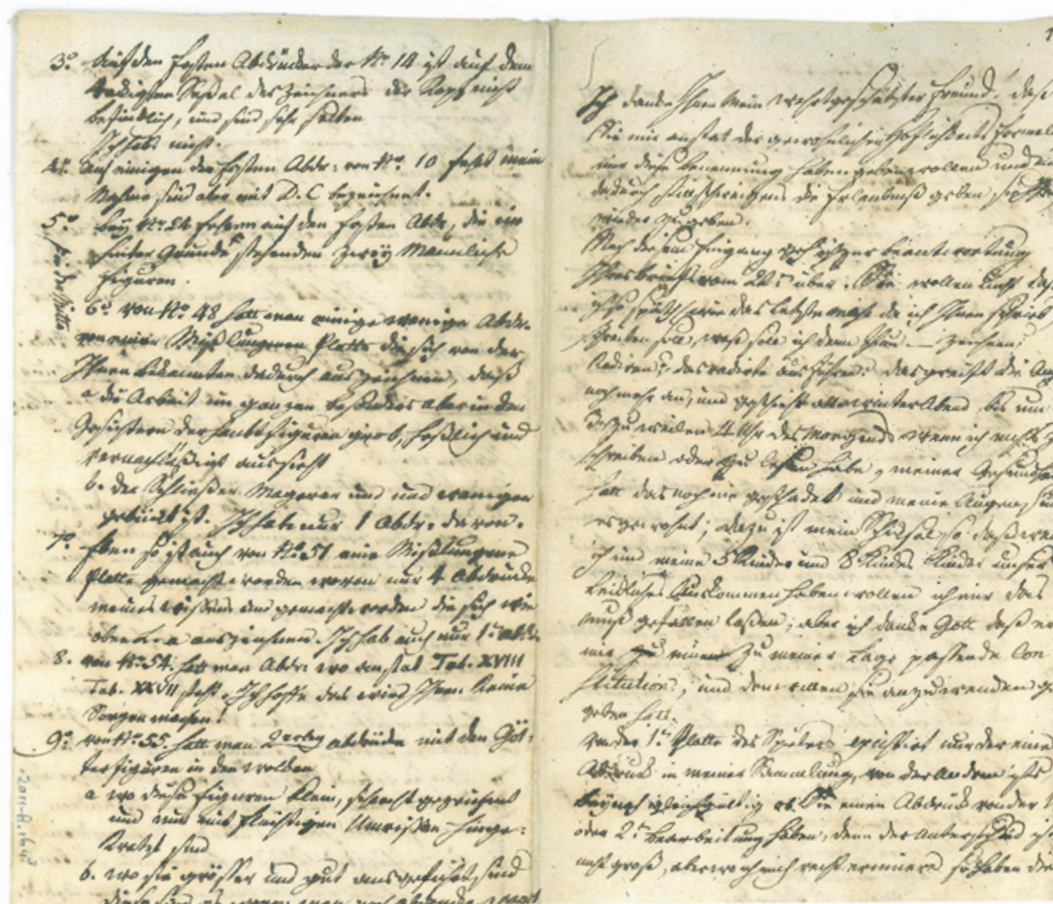 3.º Auf den Ersten Abdrücken der Nº. 14 ist auf dem
niedrigen Sessel des Zeichners der Kopf nicht
befindlich, und sind sehr selten
Ich habs nicht.
4.º auf einigen der Ersten Abdr: von Nº. 10 fehlt mein
Nahme, sind aber mit D. C bezeichnet.
5.º bey Nº. 24 fehlen auf den Ersten Abdr, die im
Hinter Grunde stehenden zwey Männliche
Figuren.
in der Mitte
6.º von Nº 48 hatt man einige wenige Abdr.
von einer Misslungenen Platte die sich von der
Ihnen bekannten dadurch auszeichnen, daß
a die Arbeit im ganzen besonders aber in den
Gesichtern der Haubt Figuren grob, häßlich und
vernachläßigt aussieht
b. der Schließer Magerer und weniger
gebückt ist. Ich habe nur 1 Abdr. davon.
7.º Eben so ist auch von Nº. 51 eine Mißlungene
Platte gemacht worden wovon nur 4 Abdrücke
meines wißens gemacht worden die sich wie
oben auszeichnen. Ich hab auch nur 1. abdr.
8. von Nº. 54. hatt man Abdr: wo anstat Tab. XVIII
Tab. XXVII steht. Ich hoffe das wird Ihnen keine
Sorgen machen!
9.º von Nº. 55. hatt man 2erley abdrücke mit den Göt:
terfiguren in den wolken
a wo diese Figuren klein, schlecht gezeichnet
und nur mit flüchtigen Umrißen hinge:
kratzt sind
b. wo sie grösser und gut ausgeführt sind
2011.A.164
Ich danke Ihnen Mein wehrtgeschätzter Freund! daß
Sie mir anstat der gewöhnlichen Höflichkeits Formel
nur diese benennung haben geben wollen und
dadurch stillschweigend die Erlaubniß geben sie Ihnen
wieder zu geben.
Nach diesem Eingang geh ich zur beantwortung
Ihres briefs vom 22.t über. Sie wollen nicht daß
ich so spät wie das letzte mahl da ich Ihnen schrieb
schreiben soll, was soll ich denn thun — zeichnen?
Radiren? das radirte ausführen? das greift die Aug
noch mehr an, und geschieht alle winter Abend bis um
zuweilen 4 Uhr des Morgends wenn ich nichts zu
schreiben oder zu lesen habe, meiner Gesundheit
hatt das noch nie geschadet und meine Augen sind
es gewohnt; dazu ist mein Schicksal so daß wen
ich und meine 3 Kinder und 8 Kindes Kinder unser
leidliches Auskommen haben wollen ich mir das
muß gefallen laßen; aber ich danke Gott daß er
mir zu meiner Lage passende Con
stitution, und den willen sie anzuwenden ge
geben hatt.
von der 1.t Platte des Spielers existirt nur der eine
Abdruck in meiner Sammlung, von der andern ists
beynah gleichgültig ob Sie einen Abdruck von der
oder 2.t bearbeitung haben, denn der Unterschied ist
nicht groß, aber wo ich mich recht erinnere so haben